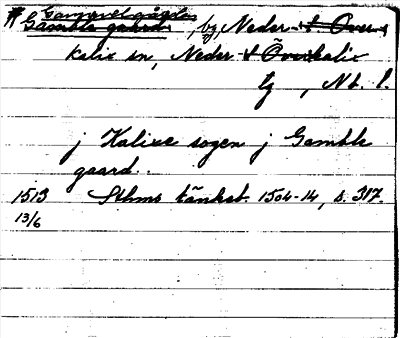 Gammelgården
# Gamble gaard, by, Neder- & Över-
kalix sn, Neder- & Överkalix
tg, Nb. l.
j Kalixe sogen j Gamble
gaard..
1513 Sthms tänkeb. 1504-14, s. 317.
13/6